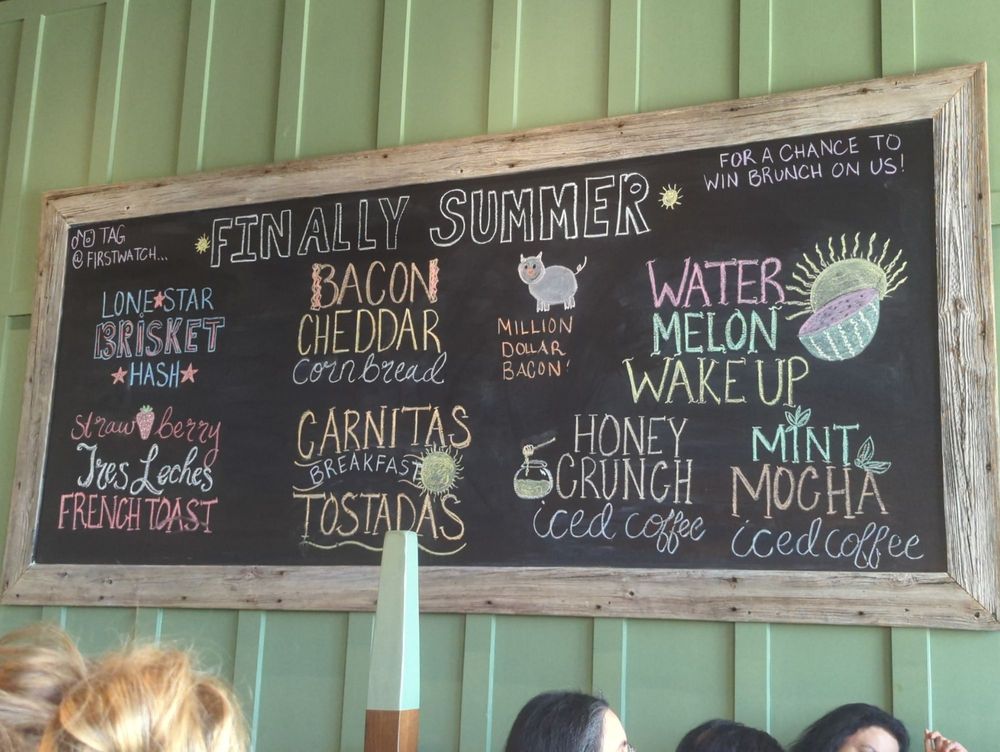 FINALLY SUMMER
TAG
@FIRSTWATCH...
FOR A CHANCE TO
WIN BRUNCH ON US!
LONE STAR
BRISKET
HASH
BACON
CHEDDAR
cornbread
MILLION
DOLLAR
BACON!
WATER
MELON
WAKE UP
strawberry
Tres Leches
FRENCH TOAST
CARNITAS
BREAKFAST
TOSTADAS
HONEY
CRUNCH
iced coffee
MINT
MOCHA
iced coffee